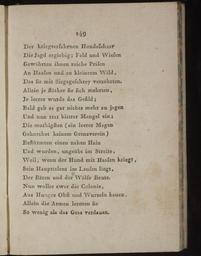 249
Der kriegserfahrnen Hundeschaar
Die Jagd ergiebig; Feld und Wiesen
Gewährten ihnen reiche Prisen
An Haasen und an kleinerm Wild,
Das sie mit Siegsgeschrey verzehrten.
Allein je stärker sie sich mehrten,
Je leerer wurde das Gefild;
Bald gab es gar nichts mehr zu jagen
Und nun trat bittrer Mangel ein:
Die muthigsten (ein leerer Magen
Gehorchet keinem Genzverein)
Bestürmten einen nahen Hain
Und wurden, ungeübt im Streite,
Weil, wenn der Hund mit Haasen kriegt,
Sein Haupttalent im Laufen liegt,
Der Bären und der Wölfe Beute.
Nun wollte zwar die Colonie,
Aus Hunger Obst und Wurzeln kauen.
Allein die Armen lernten sie
So wenig als das Gras verdauen.